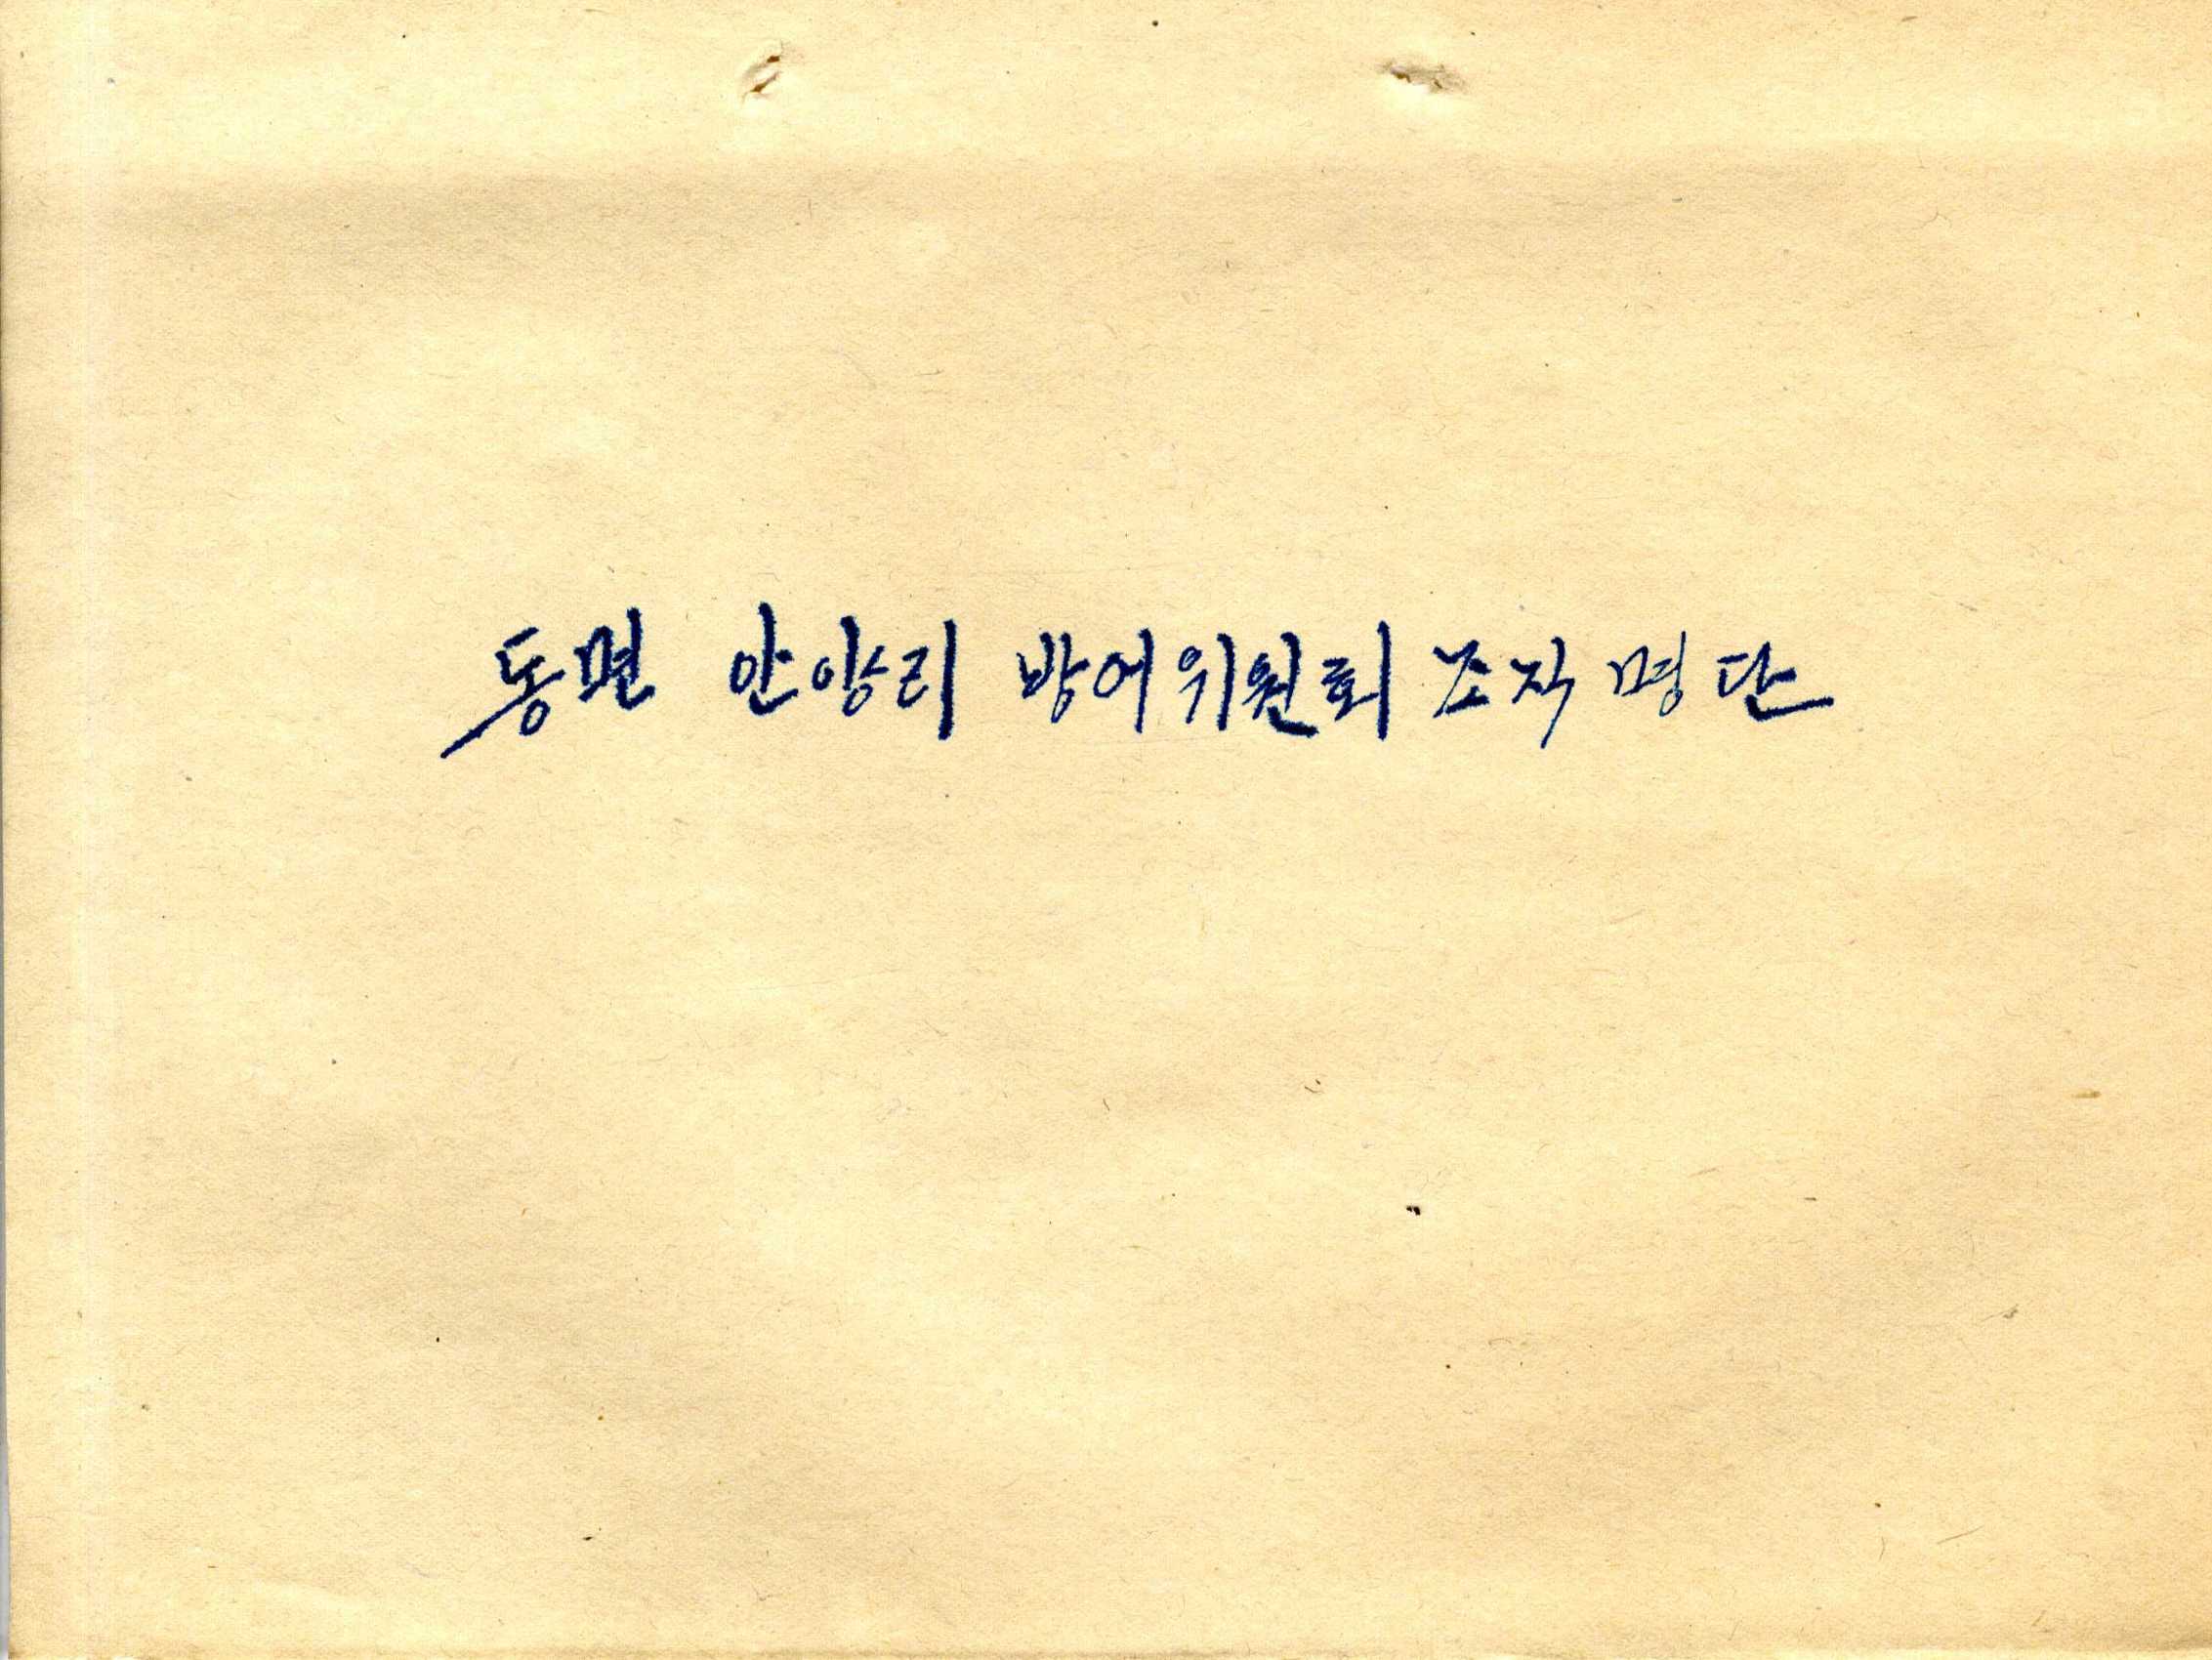 동면 안양리 방어위원회 조직 명단